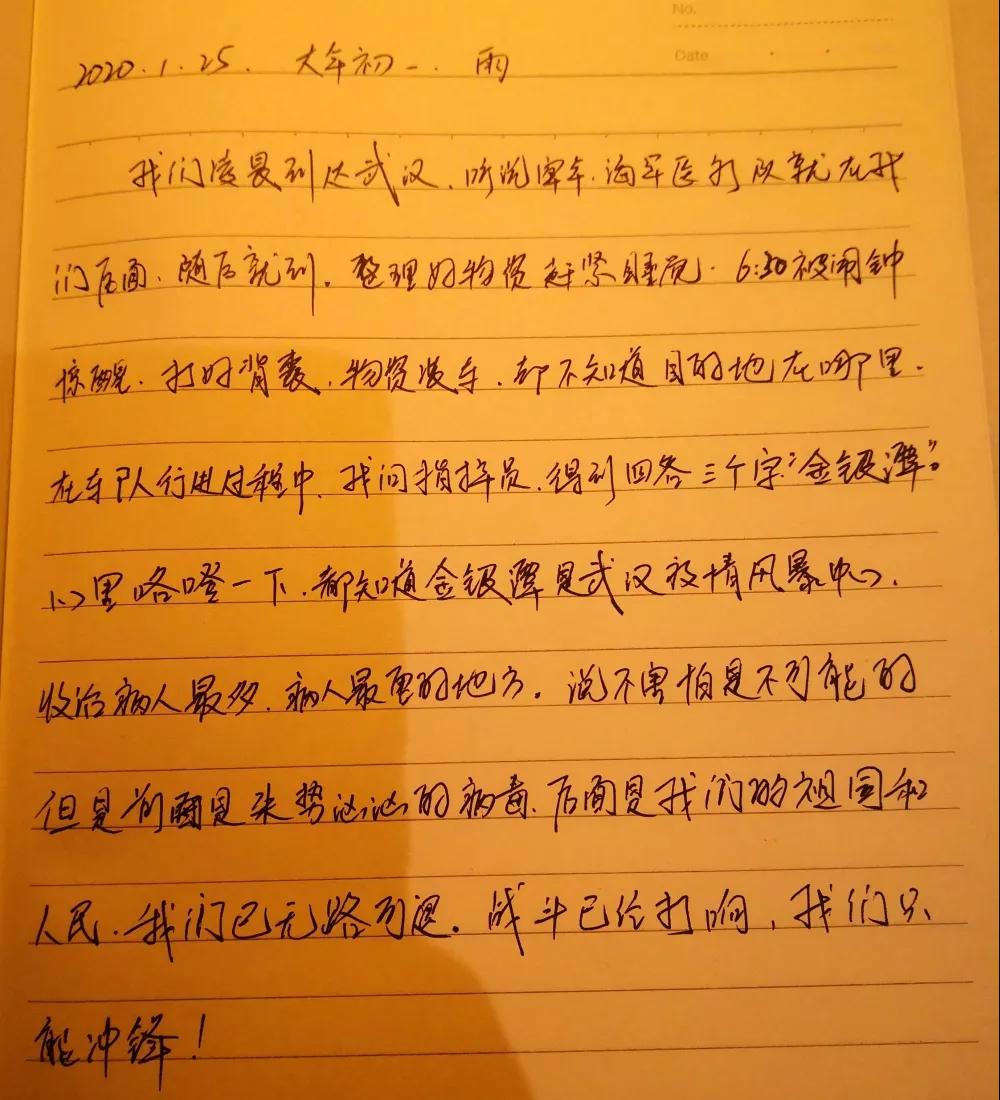 No.
Date
2020.1.25. 大年初一. 雨
我们凌晨到达武汉,听说空军、海军医疗队就在我
们后面,随后就到。整理好物资赶紧睡觉. 6:30被闹钟
惊醒,打好背囊,物资装车,却不知道目的地在哪里.
在车队行进过程中,我问指挥员,得到回答三个字“金银潭”。
心里咯噔一下,都知道金银潭是武汉疫情风暴中心,
收治病人最多,病人最重的地方。说不害怕是不可能的
但是前面是来势汹汹的病毒,后面是我们的祖国和
人民,我们已无路可退。战斗已经打响,我们只
能冲锋!